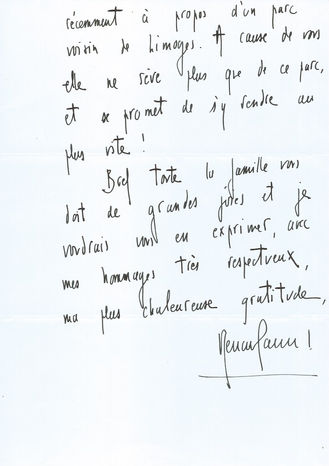 récemment à propos d'un parc
voisin de Limoges. A cause de vous
elle ne rêve plus que de ce parc,
et se promet de s'y rendre au
plus vite !
Bref toute la famille vous
doit de grandes joies et je
voudrais vous en exprimer, avec
mes hommages très respectueux,
ma plus chaleureuse gratitude,